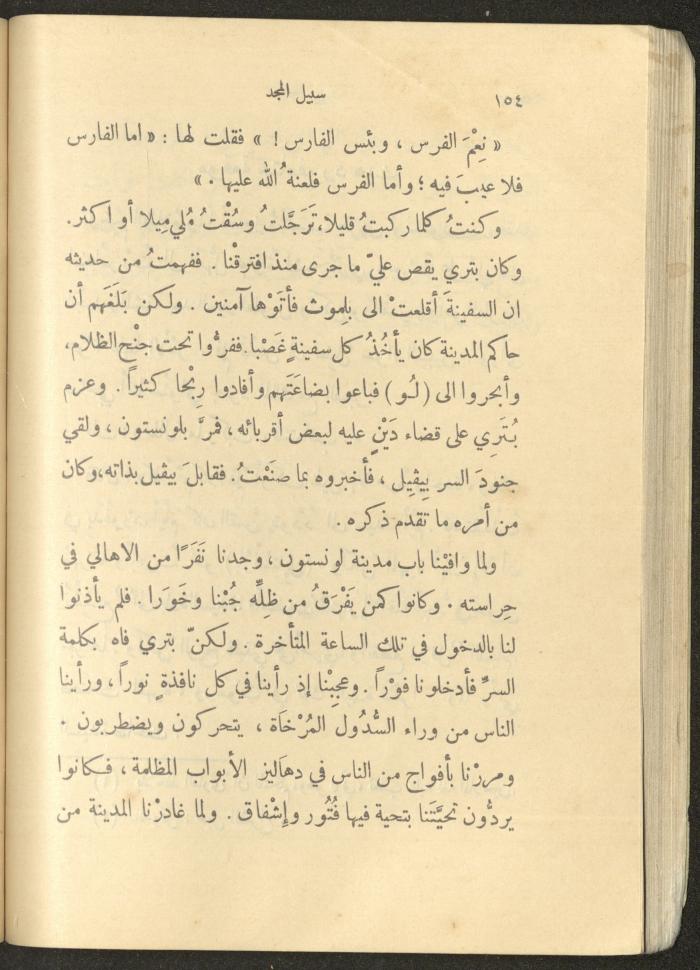 ١٥٤
سبيل المجد
« نِعْمَ الفرس ، وبئس الفارس ! » فقلت لها : « اما الفارس
فلا عيبَ فيه ؛ وأما الفرس فلعنةُ الله عليها . »
وكنتُ كلما ركبتُ قليلا، تَرَجَّلتُ وسُقْتُ مُلي مِيلا أو اكثر.
وكان بتري يقص عليّ ما جرى منذ افترقْنا . ففهمتُ من حديثه
ان السفينةَ أقلعتْ الى بلِموث فأتَوْها آمنين . ولكن بَلَغَهم أن
حاكم المدينة كان يأخُذُ كل سفينةٍ غَصْبا. ففرُّوا تحت جنْح الظلام،
وأبحروا الى (لُو) فباعوا بضاعَتَهم وأفادوا رِبْحا كثيراً . وعزم
بُتَرِي على قضاء دَيْنٍ عليه لبعض أقربائه، فمرَّ بلونستون ، ولقي
جنودَ السر بيڤِيل ، فأخبروه بما صنَعْتُ. فقابلَ بيڤيل بذاته، وكان
من أمره ما تقدم ذكره .
ولما وافيْنا باب مدينة لونستون ، وجدنا نَفَرًا من الاهالي في
حِراسته . وكانوا كمن يَفْرَقُ من ظِلِّه جُبْنا وخَوَرا . فلم يأذنوا
لنا بالدخول في تلك الساعة المتأخرة . ولكنّ بتري فاه بكلمة
السرِّ فأدخلونا فوْراً . وعجِبْنا إذ رأينا في كل نافذةٍ نوراً، ورأينا
الناس من وراء السُّدُول المُرْخَاة ، يتحركون ويضطربون .
ومررْنا بأفواج من الناس في دهاليز الأبواب المظلمة ، فكانوا
يردُّون تحيَّتَنا بتحية فيها فُتُور وإِشْفاق . ولما غادرْنا المدينة من